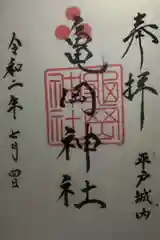 奉拝
平戸城内
亀岡神社
令和二年七月四日